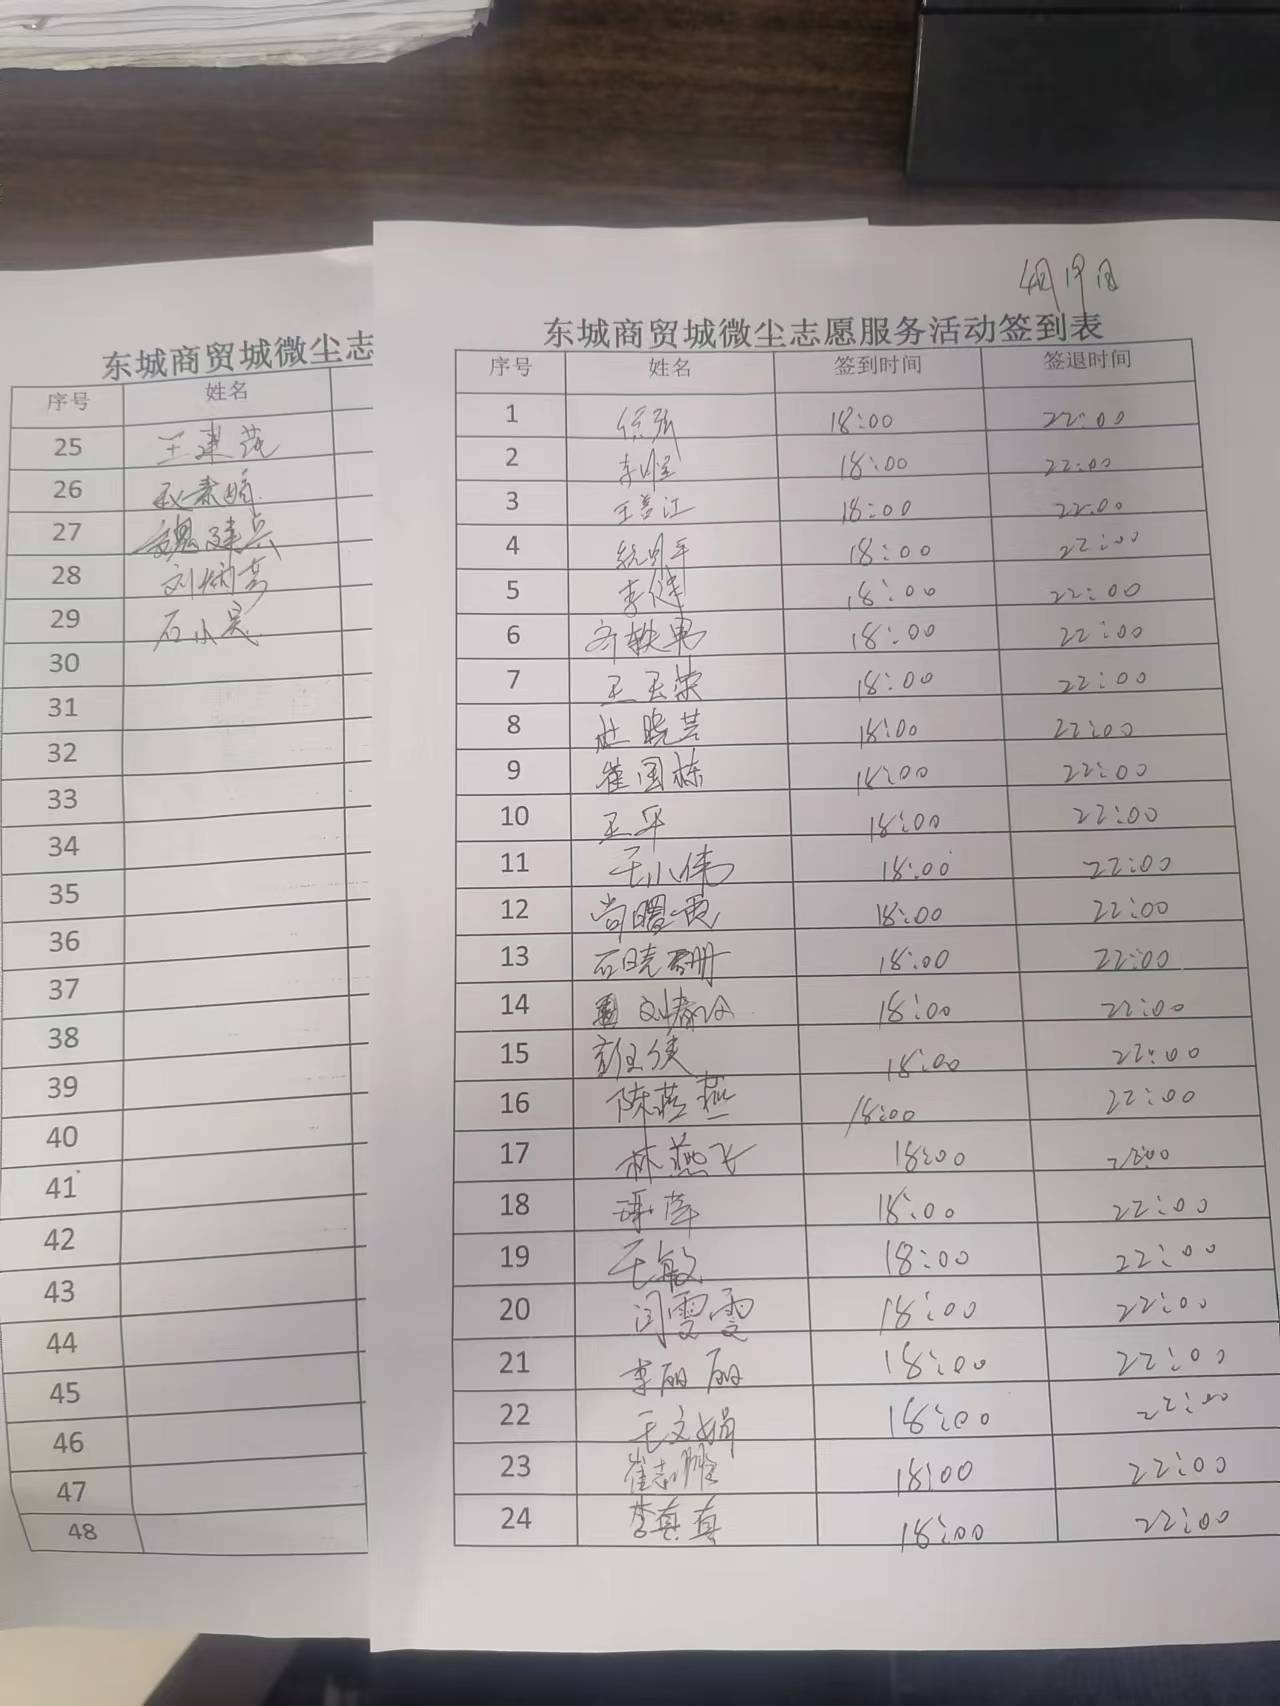 4月19日
东城商贸城微尘志愿服务活动签到表
序号 姓名 签到时间 签退时间
1 徐强 18:00 22:00
2 18:00 22:00
3 王喜江 18:00 22:00
4 18:00 22:00
5 李健 18:00 22:00
6 齐轶男 18:00 22:00
7 王玉荣 18:00 22:00
8 杜晓芸 18:00 22:00
9 崔国栋 18:00 22:00
10 王平 18:00 22:00
11 王小伟 18:00 22:00
12 尚曙 18:00 22:00
13 石晓珊 18:00 22:00
14 刘春 18:00 22:00
15 侠 18:00 22:00
16 陈燕燕 18:00 22:00
17 林燕飞 18:00 22:00
18 18:00 22:00
19 王敏 18:00 22:00
20 闫雯雯 18:00 22:00
21 李丽丽 18:00 22:00
22 王文娟 18:00 22:00
23 崔志 18:00 22:00
24 李真真 18:00 22:00
东城商贸城微尘志
序号 姓名
25 王建花
26 赵素娟
27 魏建兵
28 刘炳芳
29 石小昊
30
31
32
33
34
35
36
37
38
39
40
41
42
43
44
45
46
47
48